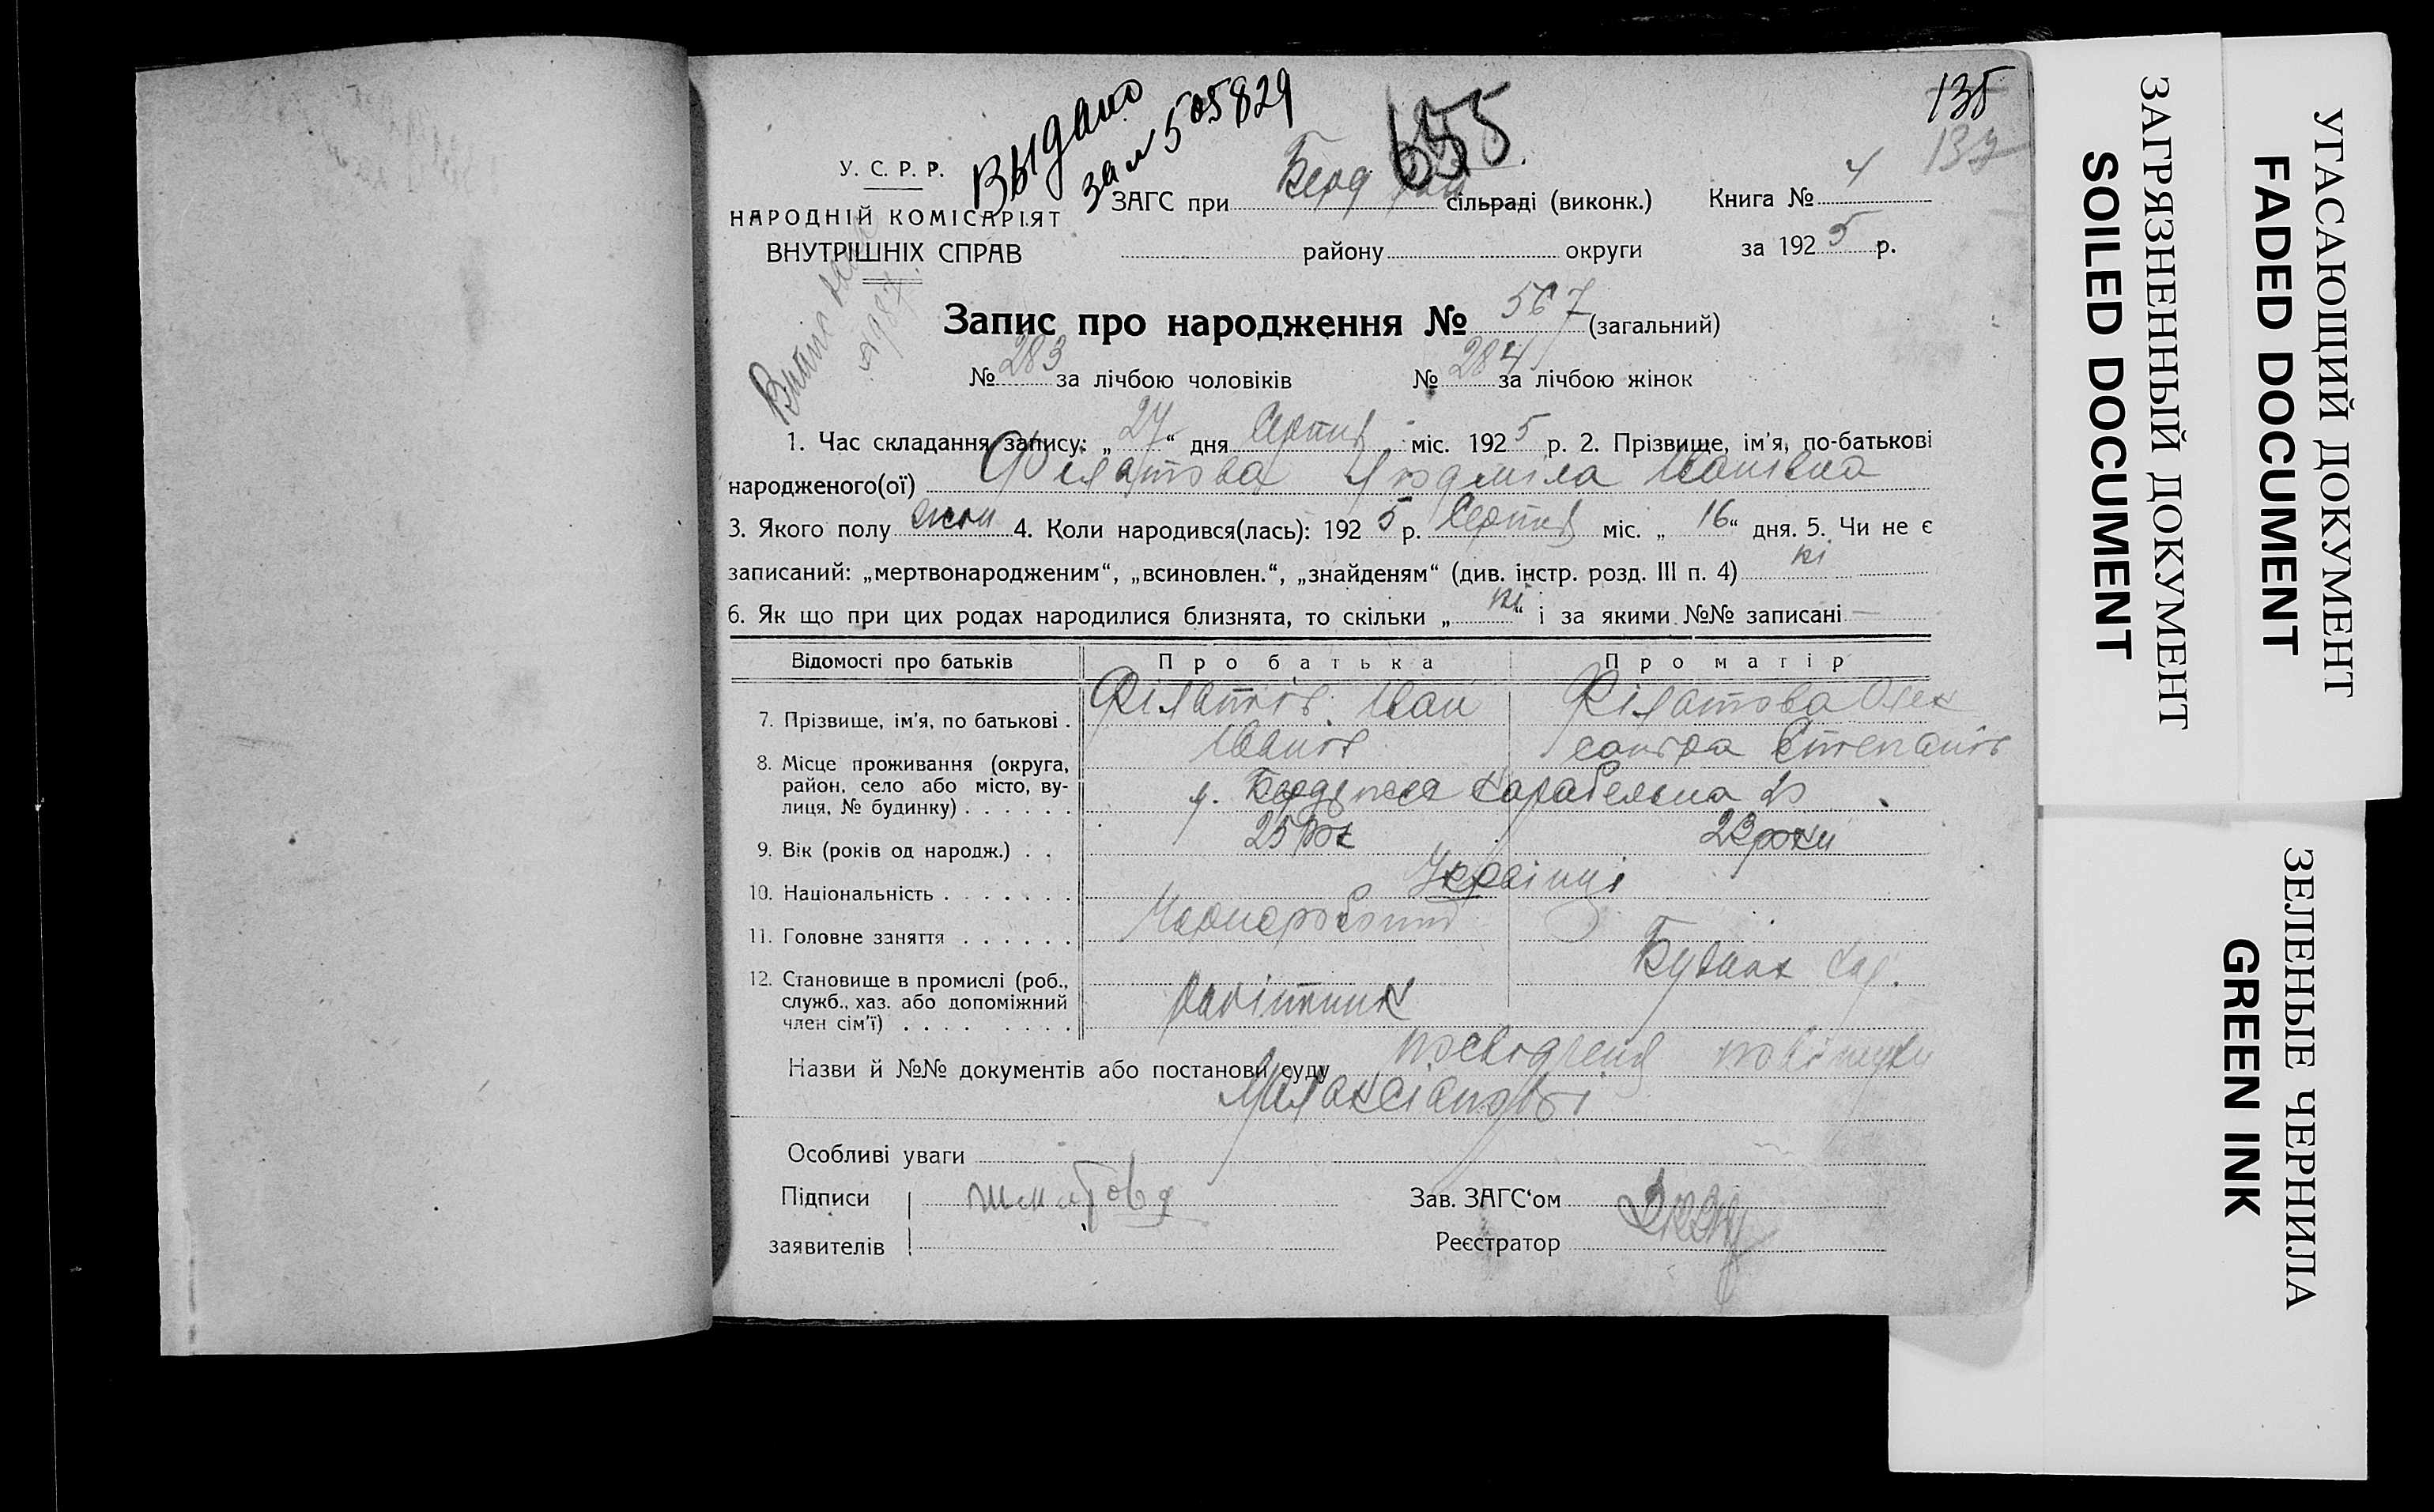 135
Выдано
за № 505829
655
У. С. Р. Р.
НАРОДНІЙ КОМІСАРІЯТ
ВНУТРІШНІХ СПРАВ
ЗАГС при Берд сільраді (виконк.)
Книга № 4
району округи
за 1925 р.
Запис про народження № 567 (загальний)
№ 283 за лічбою чоловіків № 284 за лічбою жінок
1. Час складання запису: „27“ дня Серпня міс. 1925 р. 2. Прізвище, ім'я, по-батькові
народженого(ої) Філатова Людміла Іванівна
3. Якого полу жін 4. Коли народився(лась): 1925 р. Серпня міс. „16“ дня. 5. Чи не є
записаний: „мертвонародженим“, „всиновлен.“, „знайденям“ (див. інстр. розд. III п. 4) ні
6. Як що при цих родах народилися близнята, то скільки „ні“ і за якими №№ записані —
Відомості про батьків Про батька Про матір
7. Прізвище, ім'я, по батькові . Філатов Іван Іванов Філатова Олександра Степанів
8. Місце проживання (округа,
район, село або місто, вулиця, № будинку) . . . . . .
9. Вік (років од народж.) . . 25 рок 23 роки
10. Національність . . . . . . . Українці
11. Головне заняття . . . . . . Чорноробочий
12. Становище в промислі (роб.,
служб., хаз. або допоміжний
член сім'ї) . . . . . . . .
Назви й №№ документів або постанови суду посвідченя
Особливі уваги
Підписи
заявителів
Зав. ЗАГС'ом
Реєстратор
ЗАГРЯЗНЕННЫЙ ДОКУМЕНТ
SOILED DOCUMENT
УГАСАЮЩИЙ ДОКУМЕНТ
FADED DOCUMENT
ЗЕЛЕНЫЕ ЧЕРНИЛА
GREEN INK